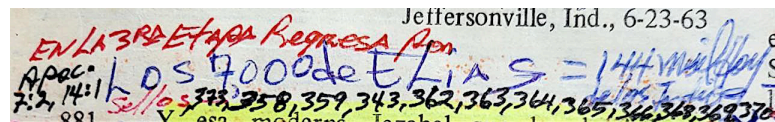 Jeffersonville, Ind., 6-23-63
EN LA 3RA Etapa Regresa Por
Apoc. LOS 7000 de ELiAS = 144 mil
7:2, 14:1 Sellos, 373, 358, 359, 343, 362, 363, 364, 365, 366, 368, 369, 370
881 Y esa moderna Jezabel